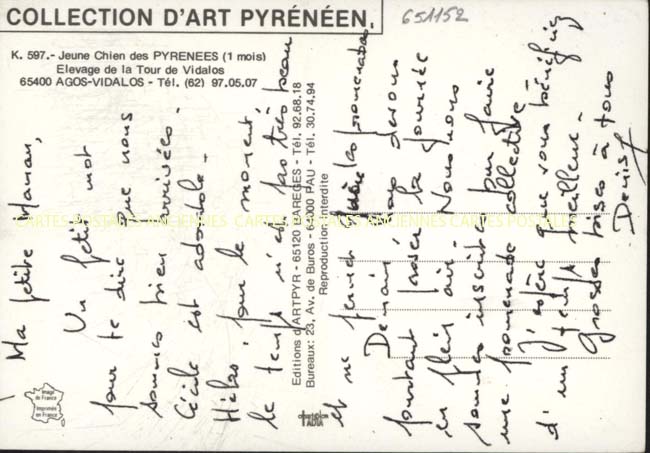 COLLECTION D'ART PYRÉNÉEN.
651152
K. 597.- Jeune Chien des PYRENEES (1 mois)
Elevage de la Tour de Vidalos
65400 AGOS-VIDALOS - Tél. (62) 97.05.07
Ma petite Maman,
Un petit mot
pour te dire que nous
sommes bien arrivées.
Cécile est adorable.
Hélas! pour le moment
le temps n'est pas très beau
et ne permet les promenades
Demain nous devons
pourtant passer la journée
en plein air. Nous nous
sommes inscrites pour faire
une promenade collective
J'espère que vous bénéficiez
d'un temps meilleur.
Grosses bises à tous
Denise
Editions d'ARTPYR - 65120 BAREGES - Tél. 92.68.18
Bureaux: 23, Av. de Buros - 64000 PAU - Tél. 30.74.94
Reproduction Interdite
CARTES POSTALES ANCIENNES CARTES POSTALES ANCIENNES CARTES POSTALES
Image
de France
Imprimée
en France